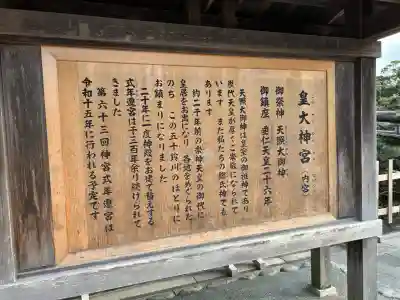 皇大神宮 内宮
御祭神 天照大御神
御鎮座 垂仁天皇二十六年
天照大御神は皇室の御祖神であり
歴代天皇が厚くご崇敬になられて
います また私たちの総氏神でも
あります
約二千年前の崇神天皇の御代に
皇居をお出になり 各地をめぐられた
のち この五十鈴川のほとりに
お鎮まりになりました
二十年に一度神殿をお建て替えする
式年遷宮は千三百年余り続けられて
きました
第六十三回神宮式年遷宮は
令和十五年に行われる予定です